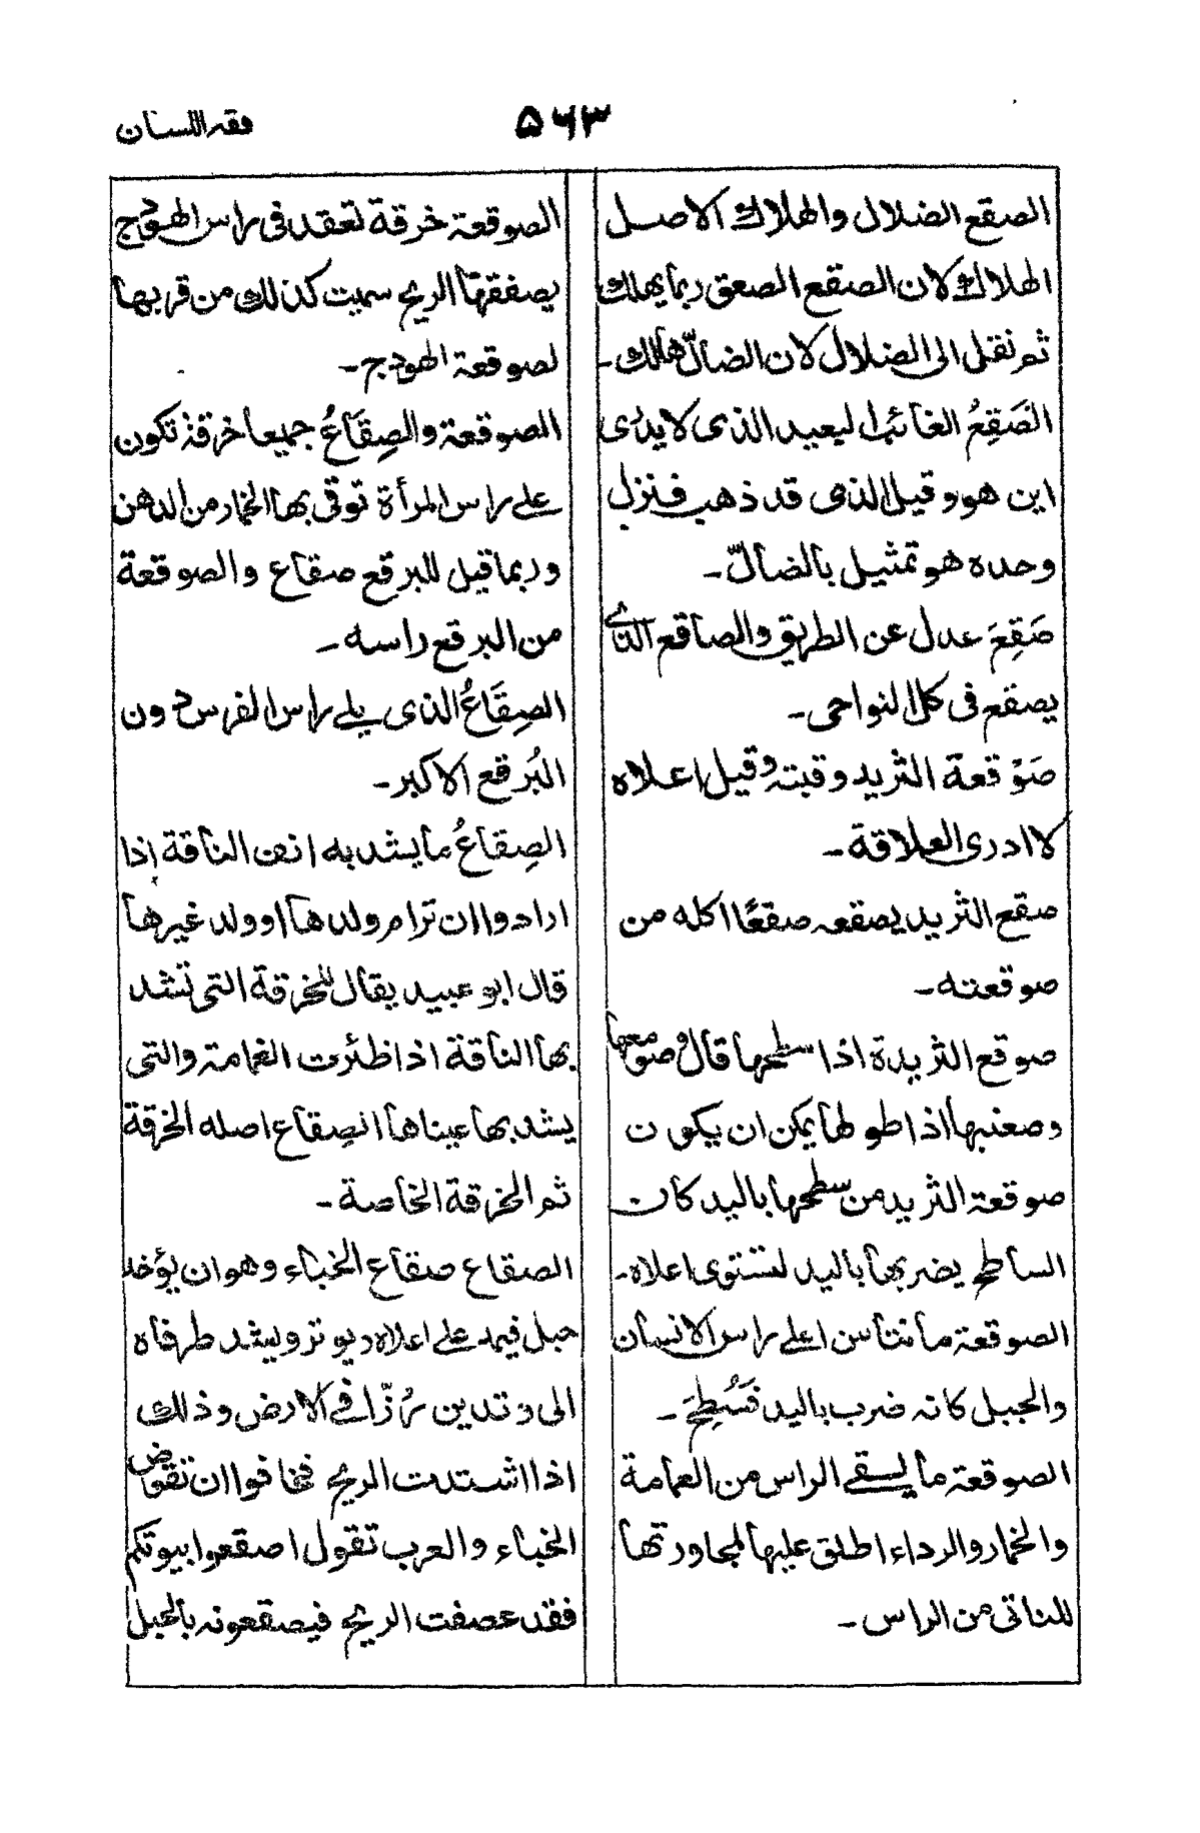 فقه اللسان
۵۶۳
الصقع الضلال والهلاك الاصل
الهلاك لان الصقع الصعق ربما يهلك
ثم نقل الى الضلال لان الضالّ هالك ـ
الصَقِعُ الغائب البعيد الذى لا يدرى
اين هو وقيل الذى قد ذهب فنزل
وحده هو تمثيل بالضالّ ـ
صَقِعَ عدل عن الطريق والصاقع الذى
يصقع فى كل النواحى ـ
صَوْقعة الثريد وقبته وقيل اعلاه
لا ادرى العلاقة ـ
صقع الثريد يصقعه صقعًا اكله من
صوقعته ـ
صوقع الثريدة اذا سطحها قال وصومعها
وصعنبها اذا طولها يمكن ان يكون
صوقعة الثريد من سطحها باليد كان
الساطح يضربها باليد لتستوى اعلاه ـ
الصوقعة ما نتأ من اعلى راس الانسان
والجبل كانه ضرب باليد فَسُطِحَ ـ
الصوقعة ما يقى الراس من العمامة
والخمار والرداء اطلق عليها لمجاورتها
للناتى من الراس ـ
الصوقعة خرقة تعقد فى راس الهودج
يصفقها الريح سميت كذلك من قربها
لصوقعة الهودج ـ
الصوقعة والصِقَاعُ جميعا خرقة تكون
على راس المرأة توقى بها الخمار من الدهن
وربما قيل للبرقع صقاع والصوقعة
من البرقع راسه ـ
الصِقَاعُ الذى يلى راس الفرس دون
البُرقع الاكبر ـ
الصِقاعُ ما يشد به انف الناقة اذا
ارادوا ان ترام ولدها او ولد غيرها
قال ابو عبيد يقال للخرقة التى تشد
بها الناقة اذا ظئرت الغمامة والتى
يشد بها عيناها الصِقاع اصله الخرقة
ثم الخرقة الخاصة ـ
الصقاع صقاع الخباء وهو ان يؤخذ
حبل فيمد على اعلاه ويوتر ويشد طرفاه
الى وتدين رُزّا فى الارض وذلك
اذا اشتدت الريح فخافوا ان تقوض
الخباء والعرب تقول اصقعوا بيوتكم
فقد عصفت الريح فيصقعونه بالحبل